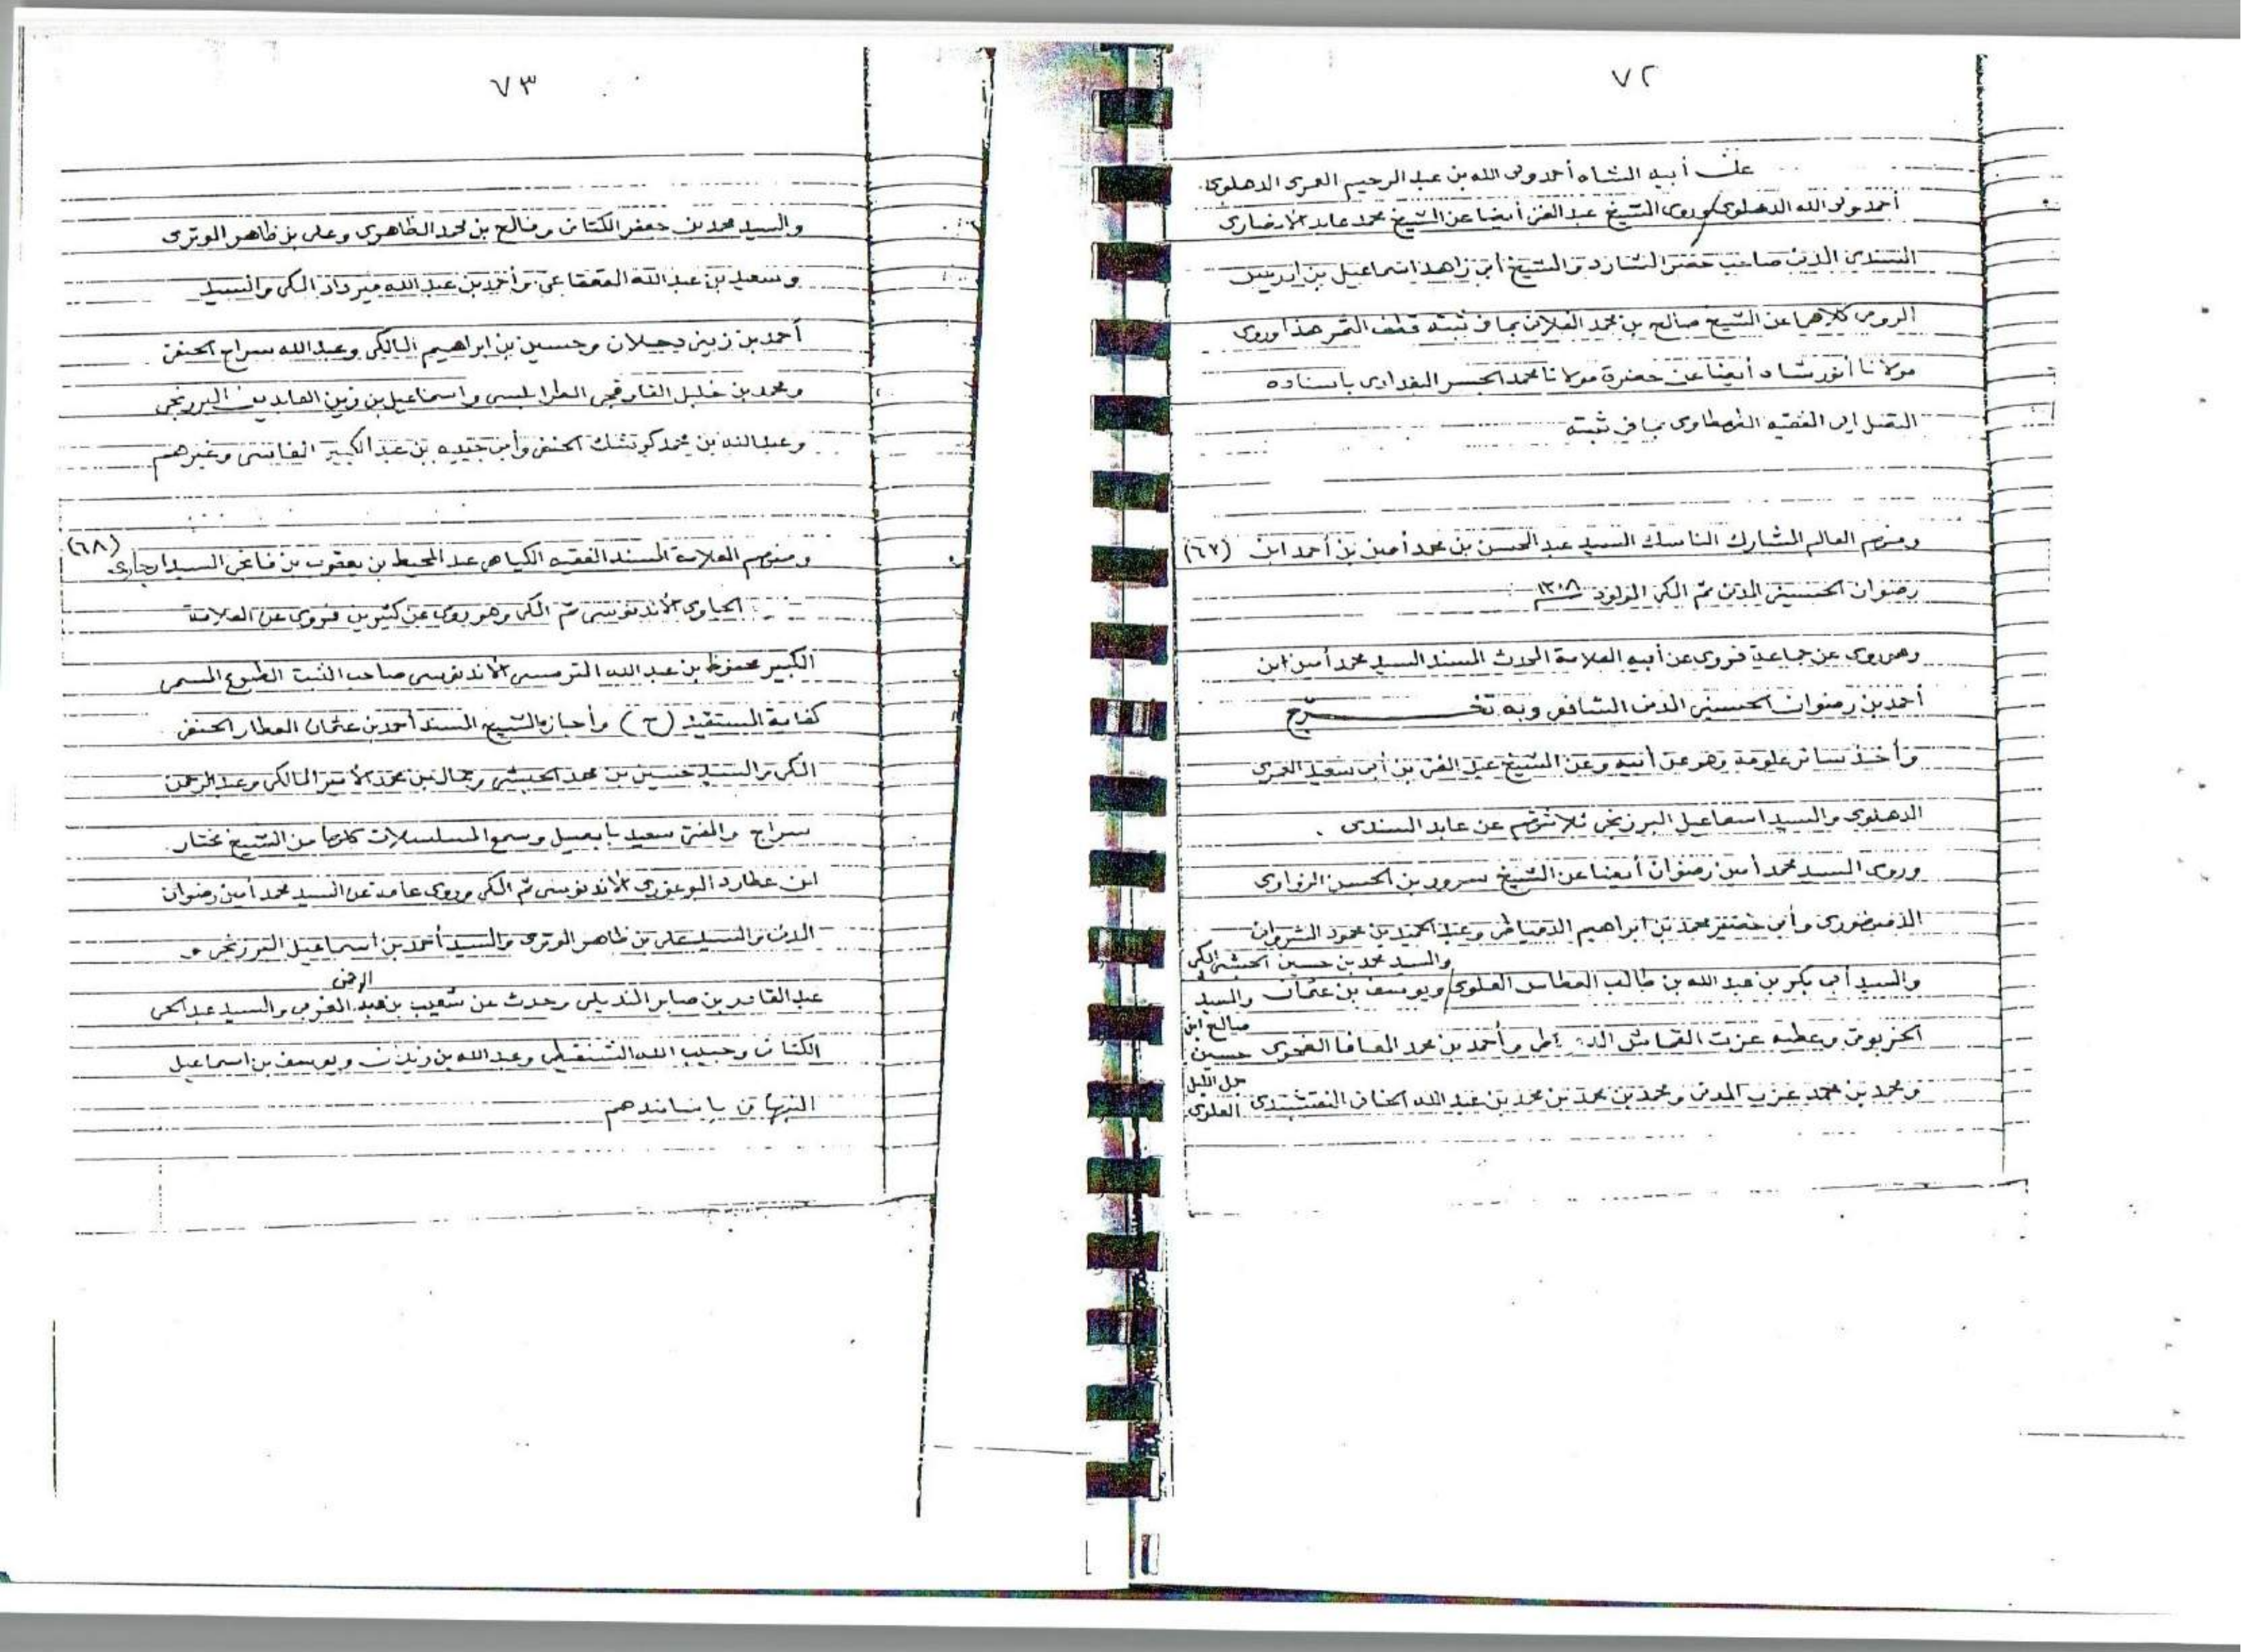 ٧٢
عن أبيه الشاه أحمد ولى الله بن عبد الرحيم العمرى الدهلوى
أحمد ولى الله الدهلوى وروى الشيخ عبد الغنى أيضا عن الشيخ محمد عابد الانصارى
السندى المدنى صاحب حصر الشارد والشيخ أبى زاهد اسماعيل بن ادريس
الرومى كلاهما عن الشيخ صالح بن محمد الفلانى بما فى ثبته قطف الثمر هذا وروى
مولانا أنور شاه أيضا عن حضرة مولانا محمد الجسر البغدادى باسناده
المتصل إلى الفقيه الطحطاوى بما فى ثبته
ومنهم العالم المشارك الناسك السيد عبد المحسن بن محمد أمين بن أحمد ابن (٦٧)
رضوان الحسينى المدنى ثم المكى المولود ١٣٠٨
وهو يروى عن جماعة فروى عن أبيه العلامة المحدث المسند السيد محمد أمين ابن
أحمد بن رضوان الحسينى المدنى الشافعى وبه تخرّج
وأخذ سائر علومه وهو عن أبيه وعن الشيخ عبد الغنى بن أبى سعيد العمرى
الدهلوى والسيد اسماعيل البرزنجى ثلاثتهم عن عابد السندى .
وروى السيد محمد أمين رضوان أيضا عن الشيخ سرور بن الحسن الزواوى
الدمنهورى وأبى خضير محمد بن ابراهيم الدمياطى وعبد الحميد بن محمود الشروانى
والسيد محمد بن حسين الحبشى المكى
والسيد أبى بكر بن عبد الله بن طالب العطاس العلوى ويوسف بن عثمان والسيد
صالح ابن
الخربوتى وعطيه عزت القماش الدمياطى وأحمد بن محمد المعافا الضحوى حسين
جمل الليل
ومحمد بن محمد عزب المدنى ومحمد بن محمد بن محمد بن عبد الله الخانى النقشبندى العلوى
٧٣
والسيد محمد بن جعفر الكتانى وفالح بن محمد الظاهرى وعلى بن ظاهر الوترى
وسعيد بن عبد الله القعقاعى وأحمد بن عبد الله ميرداد المكى والسيد
أحمد بن زينى دحلان وحسين بن ابراهيم المالكى وعبد الله سراج الحنفى
ومحمد بن خليل القاوقجى الطرابلسى واسماعيل بن زين العابدين البرزنجى
وعبد الله بن محمد كوتشك الحنفى وأبى جيده بن عبد الكبير الفاسى وغيرهم
ومنهم العلامة المسند الفقيه الكياهى عبد المحيط بن يعقوب بن فانجى السيدارجاوى (٦٨)
الجاوى الأندنوسى ثم المكى وهو يروى عن كثيرين فروى عن العلامة
الكبير محفوظ بن عبد الله الترمسى الأندنوسى صاحب الثبت المطبوع المسمى
كفاية المستفيد (ح) وأجازه الشيخ المسند أحمد بن عثمان العطار الحنفى
المكى والسيد حسين بن محمد الحبشى وجمال بن محمد الأمير المالكى وعبد الرحمن
سراج والمفتى سعيد بابصيل وسمع المسلسلات كلها من الشيخ مختار
ابن عطارد البوغورى الأندنوسى ثم المكى وروى عامة عن السيد محمد أمين رضوان
المدنى والسيد على بن ظاهر الوترى والسيد أحمد بن اسماعيل البرزنجى و
الرحمن
عبد القادر بن صابر المنديلى وحدث عن شعيب بن عبد المغربى والسيد عبد الحى
الكتانى وحبيب الله الشنقيطى وعبد الله بن زيدان ويوسف بن اسماعيل
النبهانى بأسانيدهم